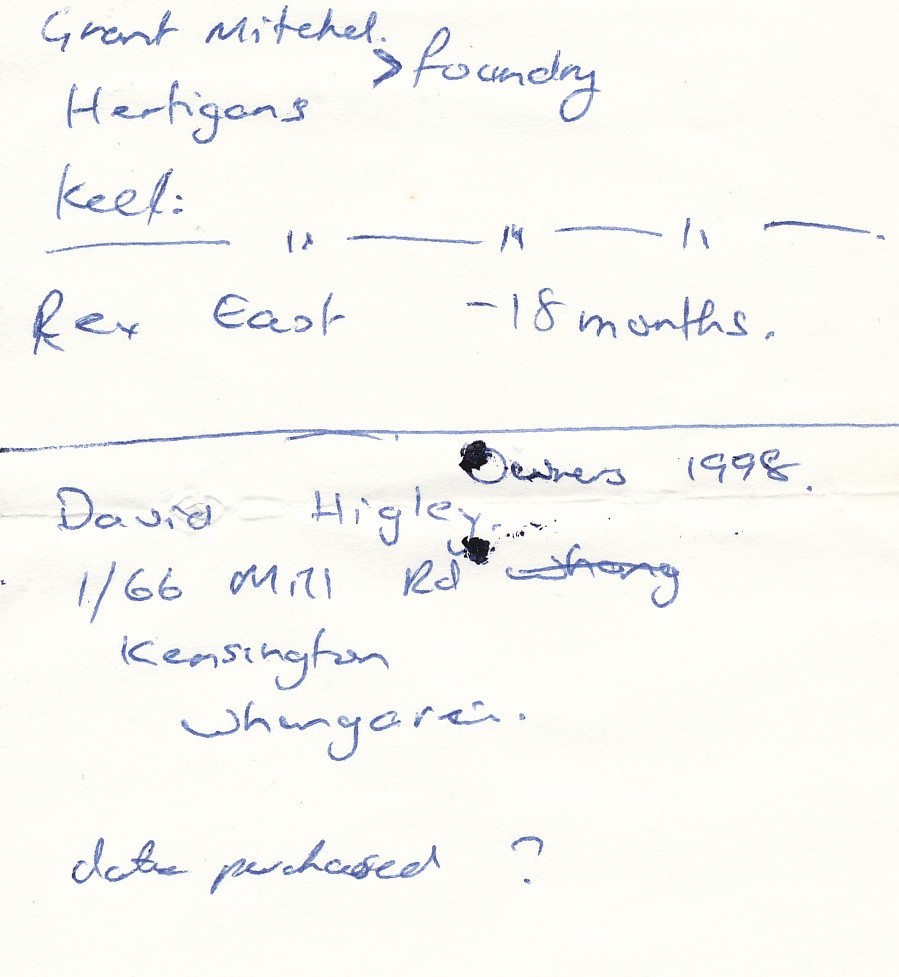 Grant Mitchel.
> foundry
Hertigans
Keel:
" — " — " — .
Rex East - 18 months.
Owners 1998.
David Higley.
1/66 Mill Rd
Kensington
Whangarei.
date purchased ?